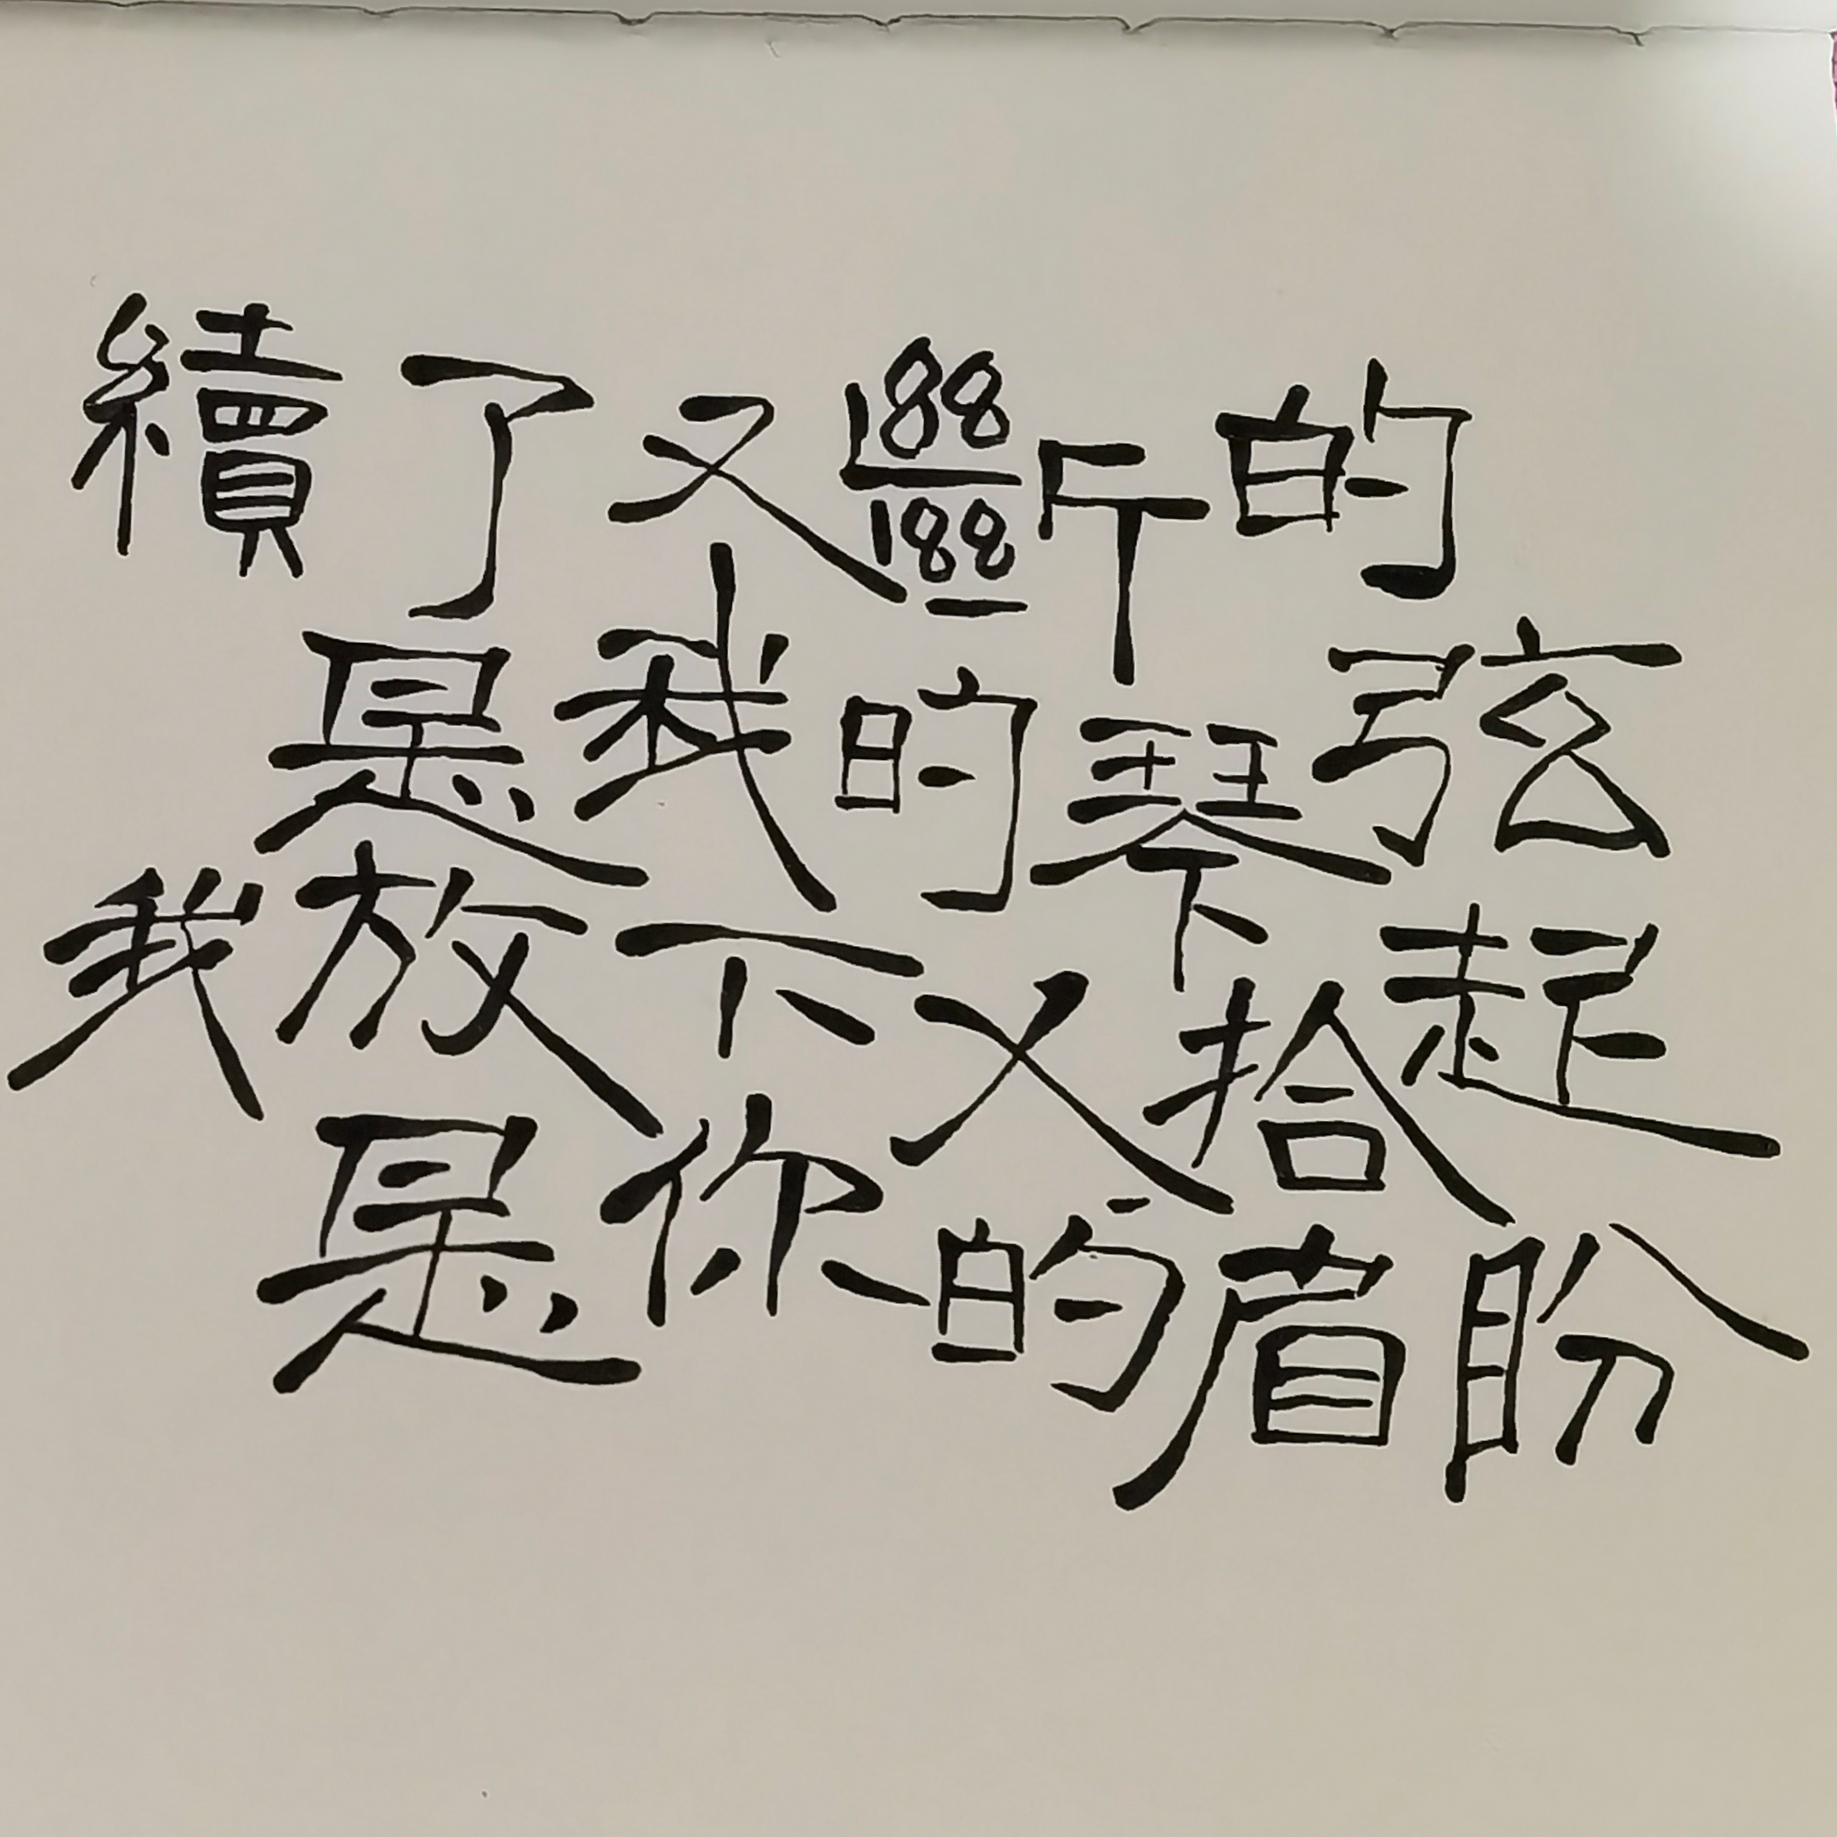 續了又斷的
是我的琴弦
我放下又拾起
是你的眉盼